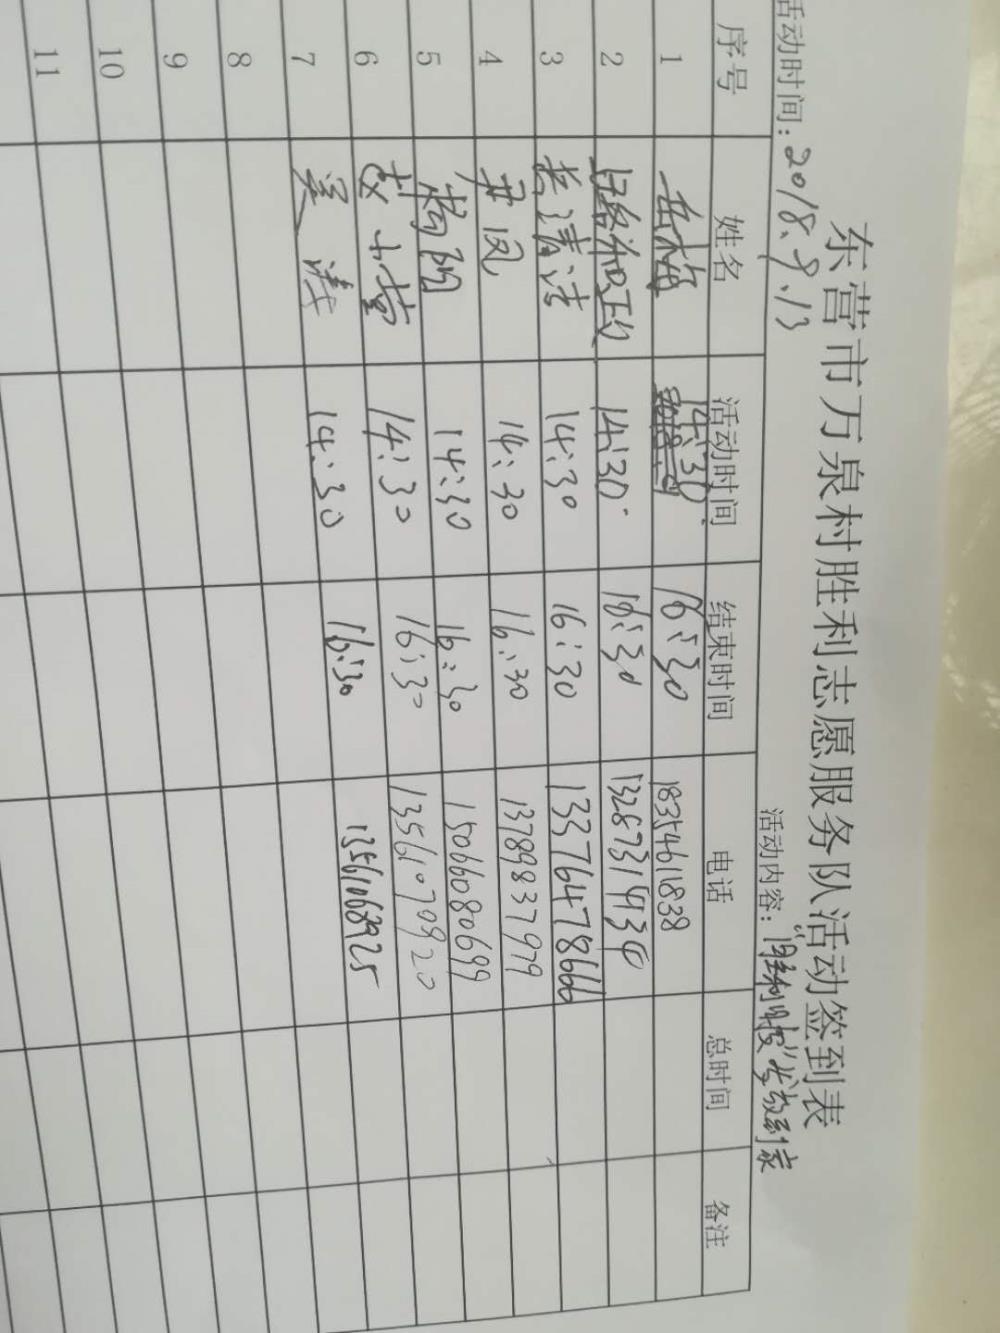 东营市万泉村胜利志愿服务队活动签到表
活动时间：2018.9.13 活动内容：
序号 姓名 活动时间 结束时间 电话 总时间 备注
1 岳梅 14:30 16:30 18354611838
2 14:30 16:30 13287319430
3 李清洁 14:30 16:30 13376478666
4 尹凤 14:30 16:30 13789837979
5 杨丽 14:30 16:30 15066080699
6 赵小雪 14:30 16:30 13561070920
7 吴涛 14:30 16:30 13561068925
8
9
10
11